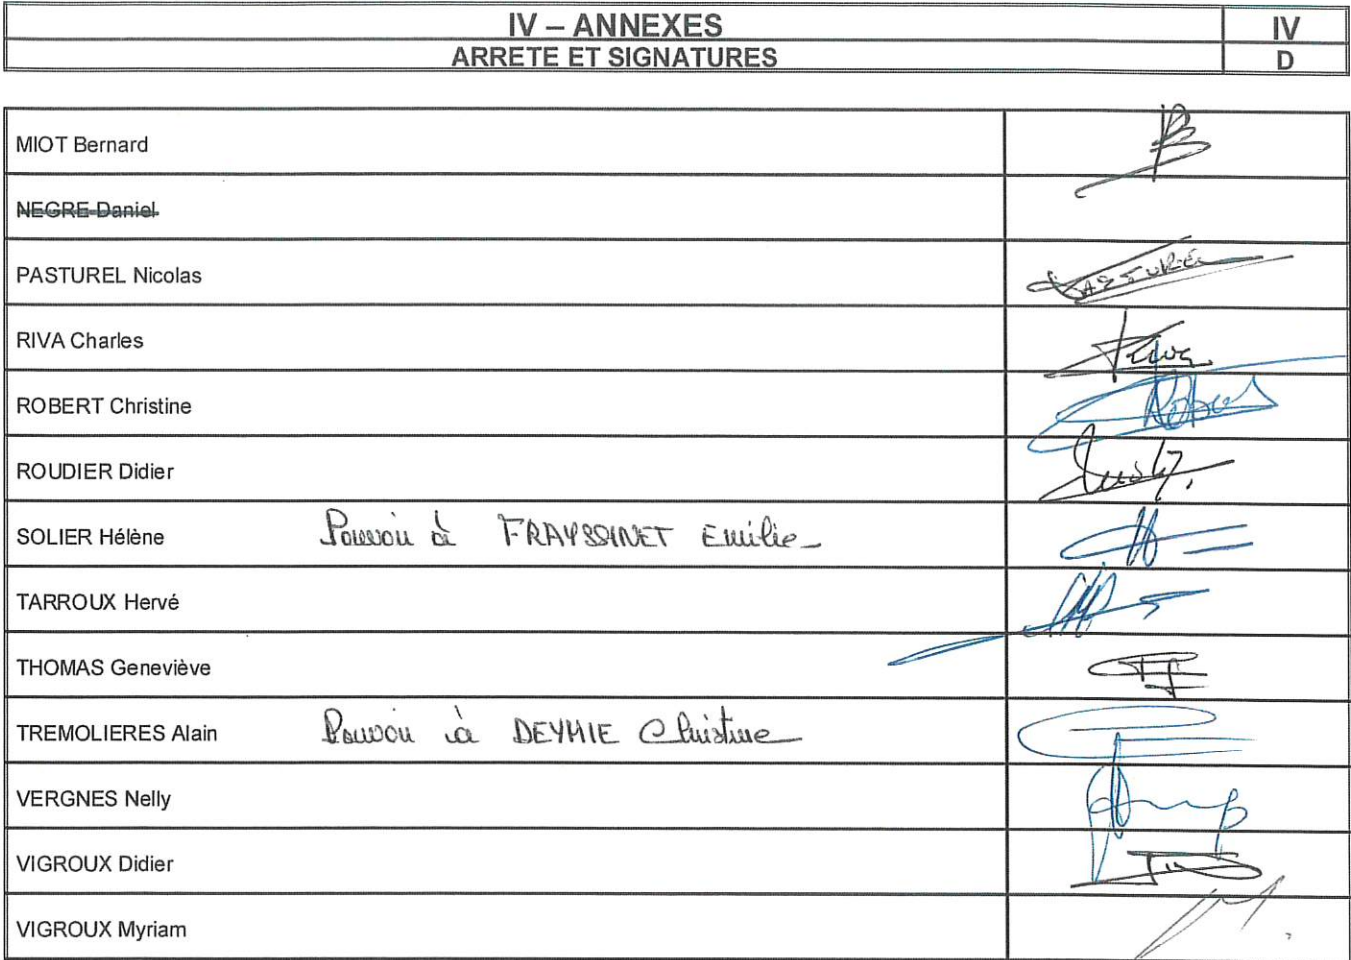 IV – ANNEXES
IV
ARRETE ET SIGNATURES
D
MIOT Bernard
NEGRE Daniel
PASTUREL Nicolas
RIVA Charles
Riva
ROBERT Christine
Robert
ROUDIER Didier
SOLIER Hélène Pouvoir à FRAYSSINET Emilie
TARROUX Hervé
THOMAS Geneviève
TREMOLIERES Alain Pouvoir à DEYMIE Christine
VERGNES Nelly
VIGROUX Didier
VIGROUX Myriam